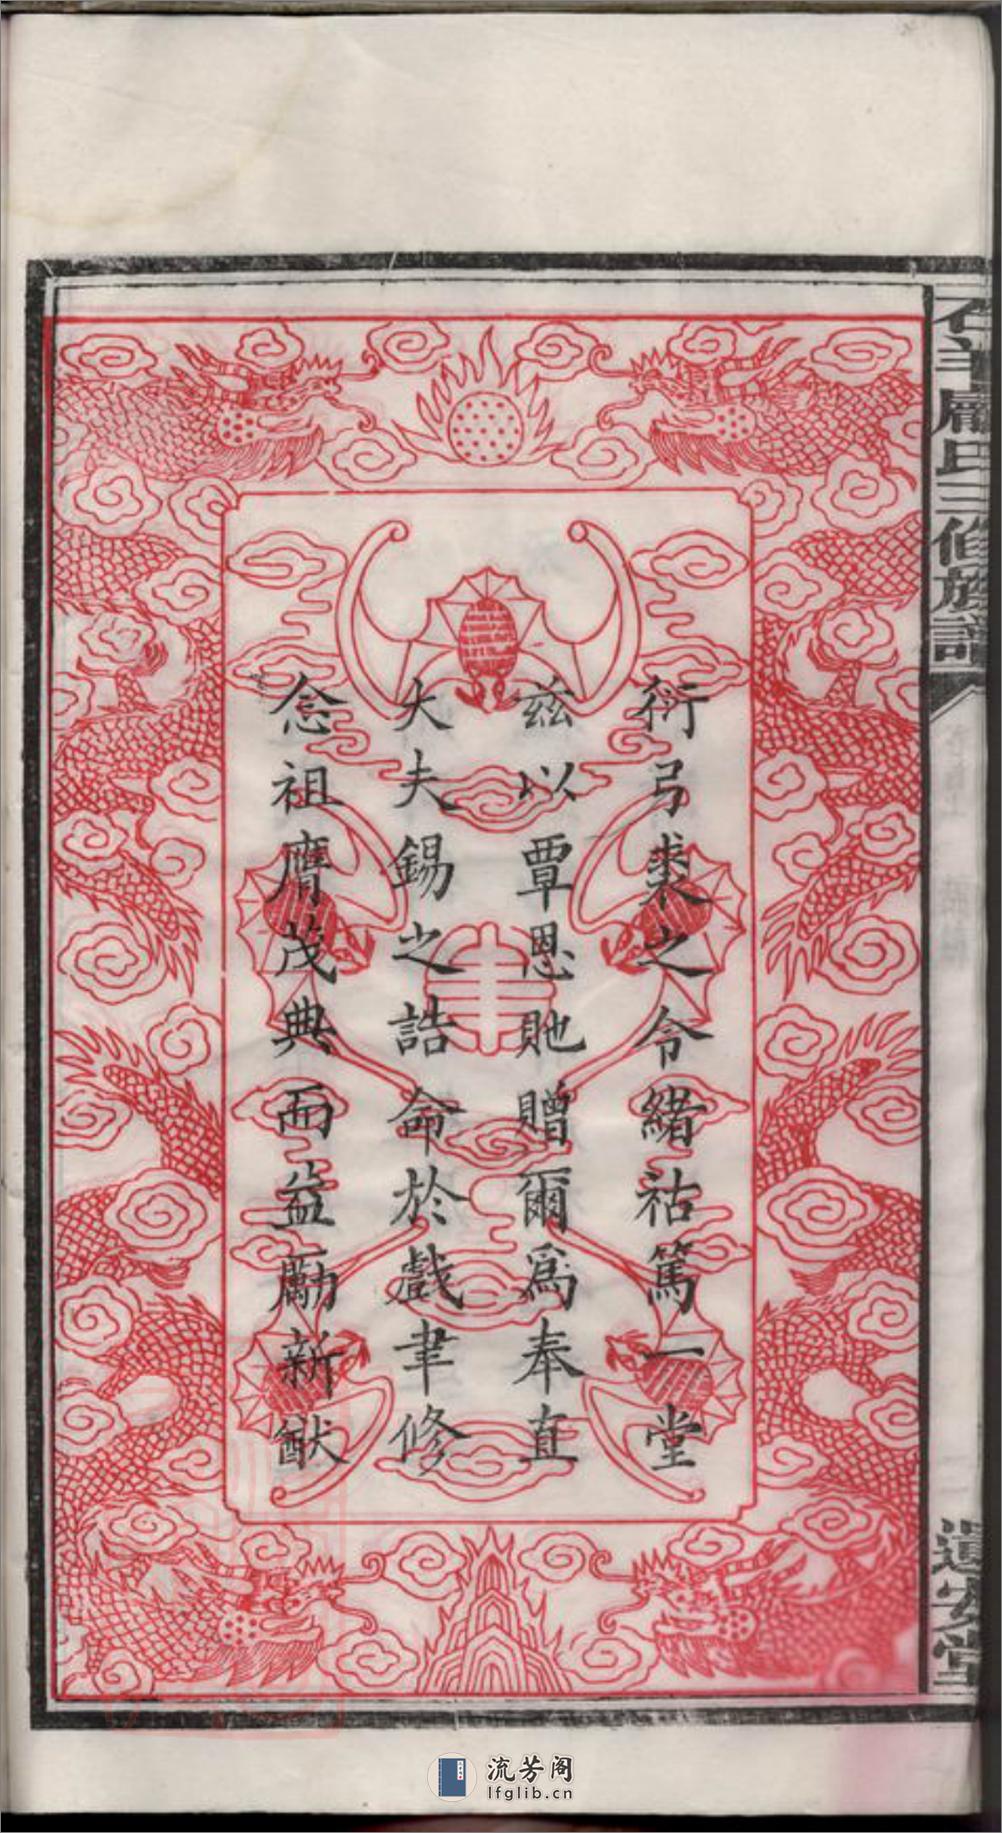 衍弓裘之令緒祜篤一堂
茲以覃恩貤贈爾爲奉直
大夫錫之誥命於戲聿修
念祖膺茂典而益勵新猷
氏三修族譜
遺安堂
流芳阁
lfglib.cn